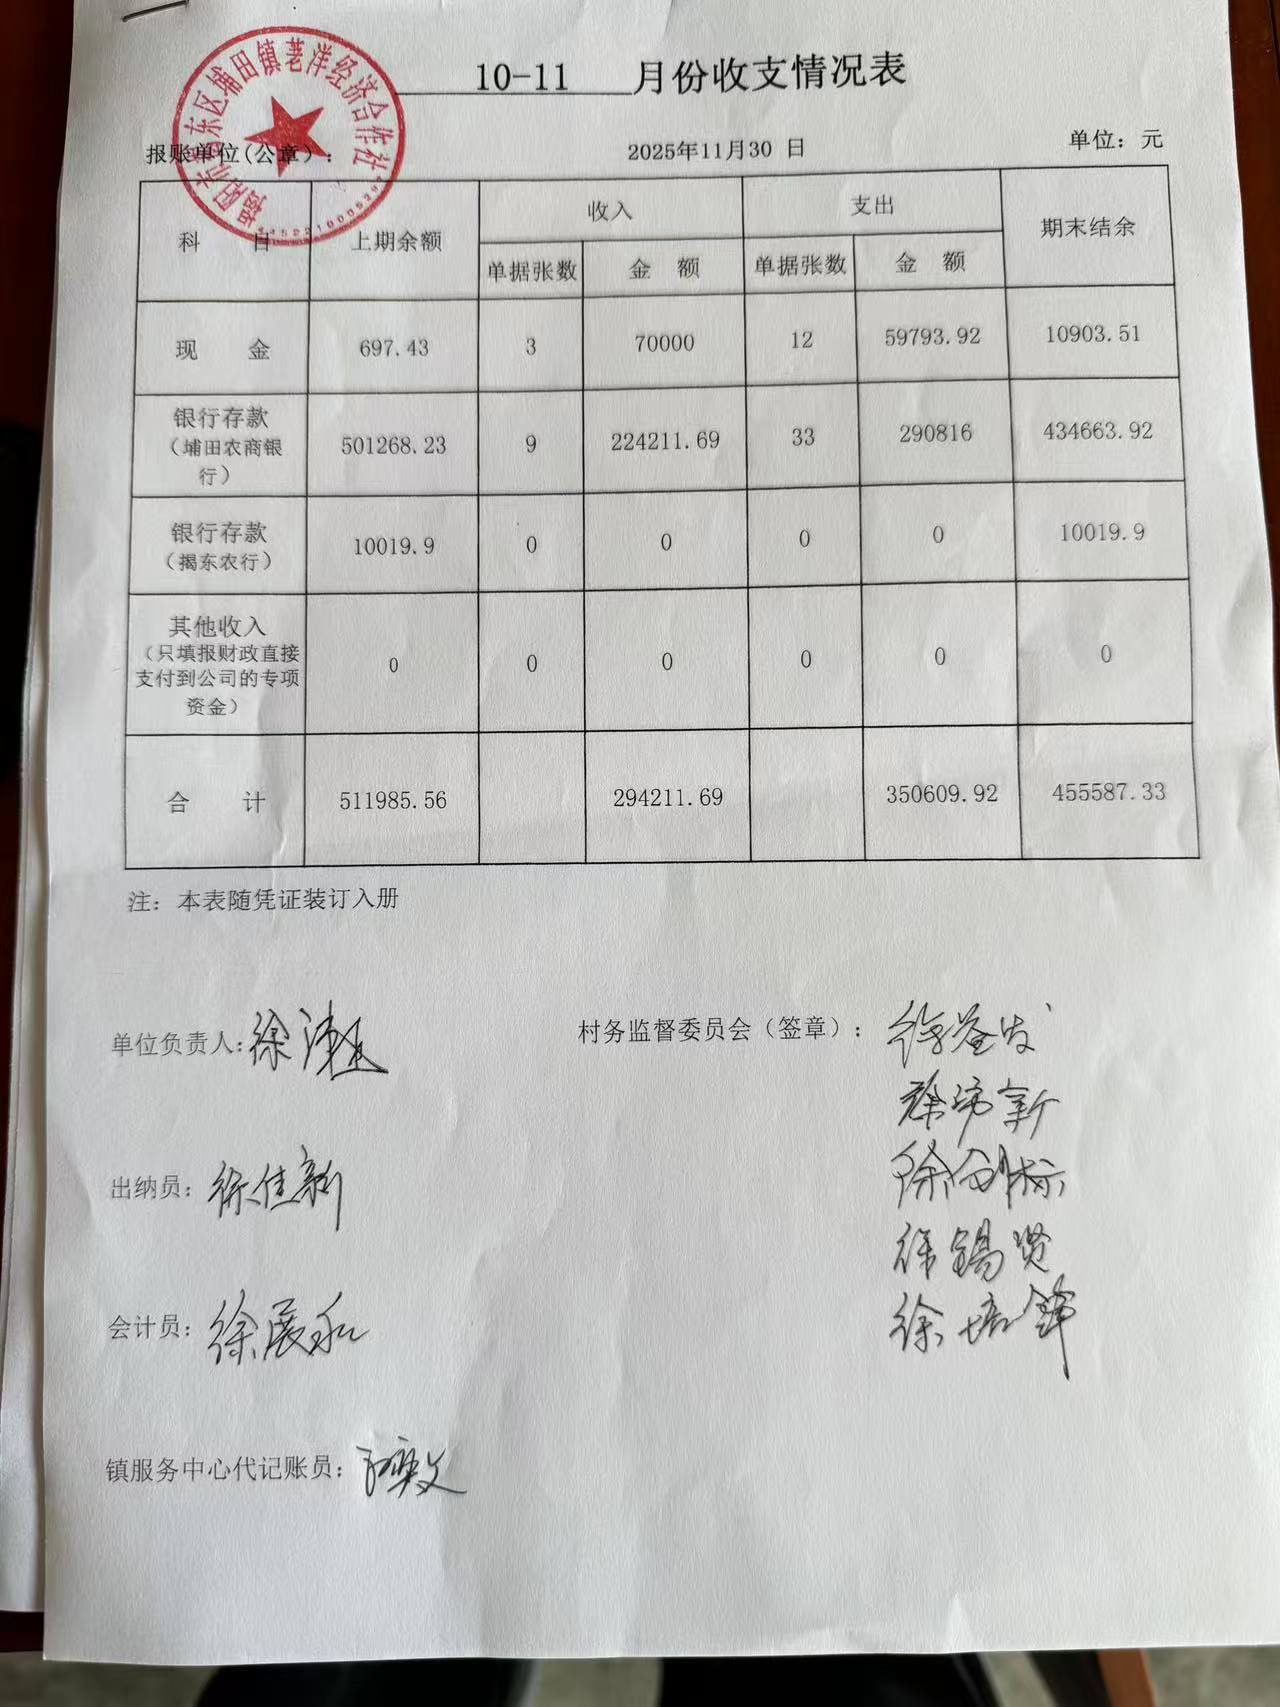 揭阳市揭东区埔田镇荖洋经济合作社
10-11 月份收支情况表
报账单位(公章): 2025年11月30 日 单位: 元
科 目 上期余额 收入 支出 期末结余
单据张数 金 额 单据张数 金 额
现 金 697.43 3 70000 12 59793.92 10903.51
银行存款
(埔田农商银
行) 501268.23 9 224211.69 33 290816 434663.92
银行存款
(揭东农行) 10019.9 0 0 0 0 10019.9
其他收入
(只填报财政直接
支付到公司的专项
资金) 0 0 0 0 0 0
合 计 511985.56 294211.69 350609.92 455587.33
注: 本表随凭证装订入册
单位负责人: 徐 村务监督委员会(签章): 徐
徐 新
出纳员: 徐佳新 徐剑标
徐锡贤
会计员: 徐展永 徐培锋
镇服务中心代记账员: